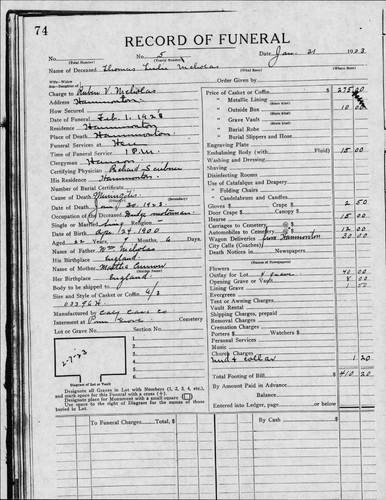 74
RECORD OF FUNERAL
No. 5 Date Jan. 31 1923
(Total Number) (Yearly Number)
Name of Deceased Thomas Leslie Nicholas
Order Given by
Charge to Ruben V. Nicholas
Address Hammonton
How Secured
Date of Funeral Feb. 1, 1923
Residence Hammonton
Place of Death Hammonton
Funeral Services at
Time of Funeral Service 1 P.M.
Clergyman
Certifying Physician
His Residence Hammonton
Number of Burial Certificate
Cause of Death
Date of Death Jan. 30, 1923
Occupation of the Deceased
Single or Married Religion
Date of Birth Sept. 24, 1900
Aged 22 Years Months 6 Days
Name of Father Wm Nicholas
His Birthplace England
Name of Mother Mattie
Her Birthplace England
Body to be shipped to
Size and Style of Casket or Coffin 6/3
Manufactured by Co
Interment at Cemetery
Lot or Grave No. Section No.
2-7-23
Diagram of Lot or Vault
Designate all Graves in Lot with Numbers (1, 2, 3, 4, etc.), and mark space for this Funeral with a cross (+).
Designate place for Monument with a small square
Use space to right of Diagram for names of those buried in Lot.
Price of Casket or Coffin 275 00
" Metallic Lining
" Outside Box 10 00
" Grave Vault
" Burial Robe
" Burial Slippers and Hose
Engraving Plate
Embalming Body (with Fluid) 15 00
Washing and Dressing
Shaving
Disinfecting Rooms
Use of Catafalque and Drapery
" Folding Chairs
" Candelabrum and Candles
Gloves $ Crape $ 2 50
Door Crape $ Canopy $
Hearse 15 00
Carriages to Cemetery @$
Automobiles to Cemetery @$ 12 00
Wagon Deliveries from Hammonton 30 00
City Calls (Coaches) @$
Death Notices in Newspapers
(Names of Newspapers)
Flowers
Outlay for Lot 40 00
Opening Grave or Vault 8 00
Lining Grave 1 50
Evergreen
Tent or Awning Charges
Vault Rental
Shipping Charges, prepaid
Removal Charges
Cremation Charges
Porters $ Watchers $
Personal Services
Music
Church Charges
and collar 1 20
Total Footing of Bill $410 20
By Amount Paid in Advance
Balance
Entered into Ledger, page or below.
To Funeral Charges, Total
By Cash $